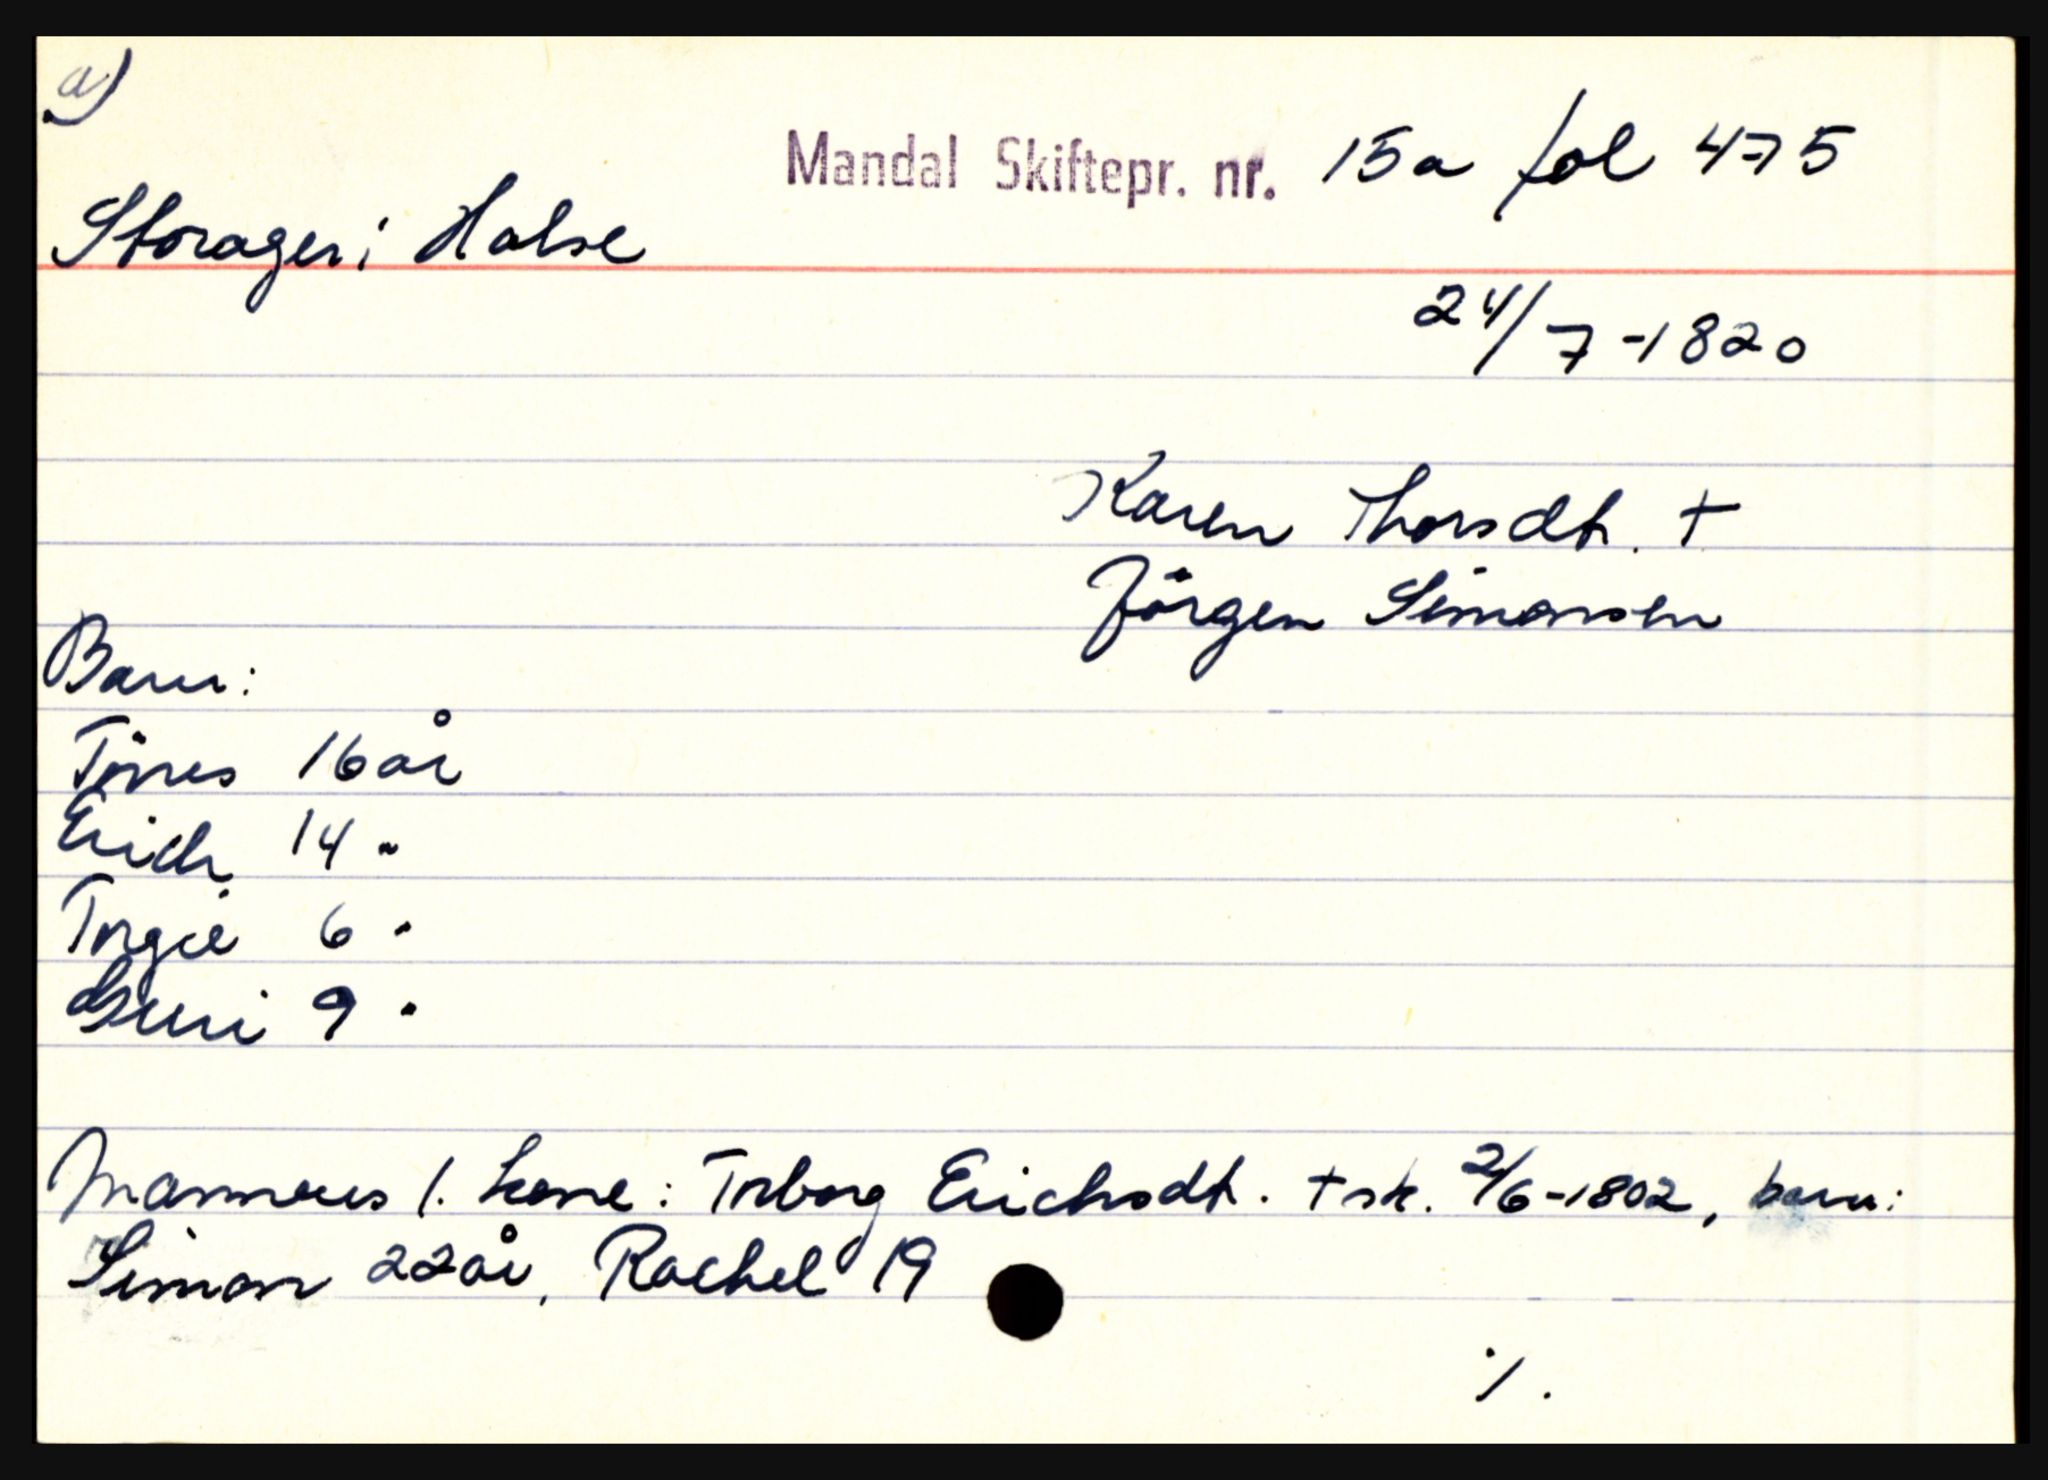 a)
Mandal Skiftepr. nr. 15a fol 475
Storager i Halse
24/7-1820
Karen Thorsdt. +
Jörgen Simonsen
Barn:
Tönnes 16 år
Erich 14 "
Torgie 6 "
Guri 9 "
Mannens 1. kone: Torborg Erichsdt. + sk. 2/6-1802, barn:
Simon 22 år, Rachel 19
./.